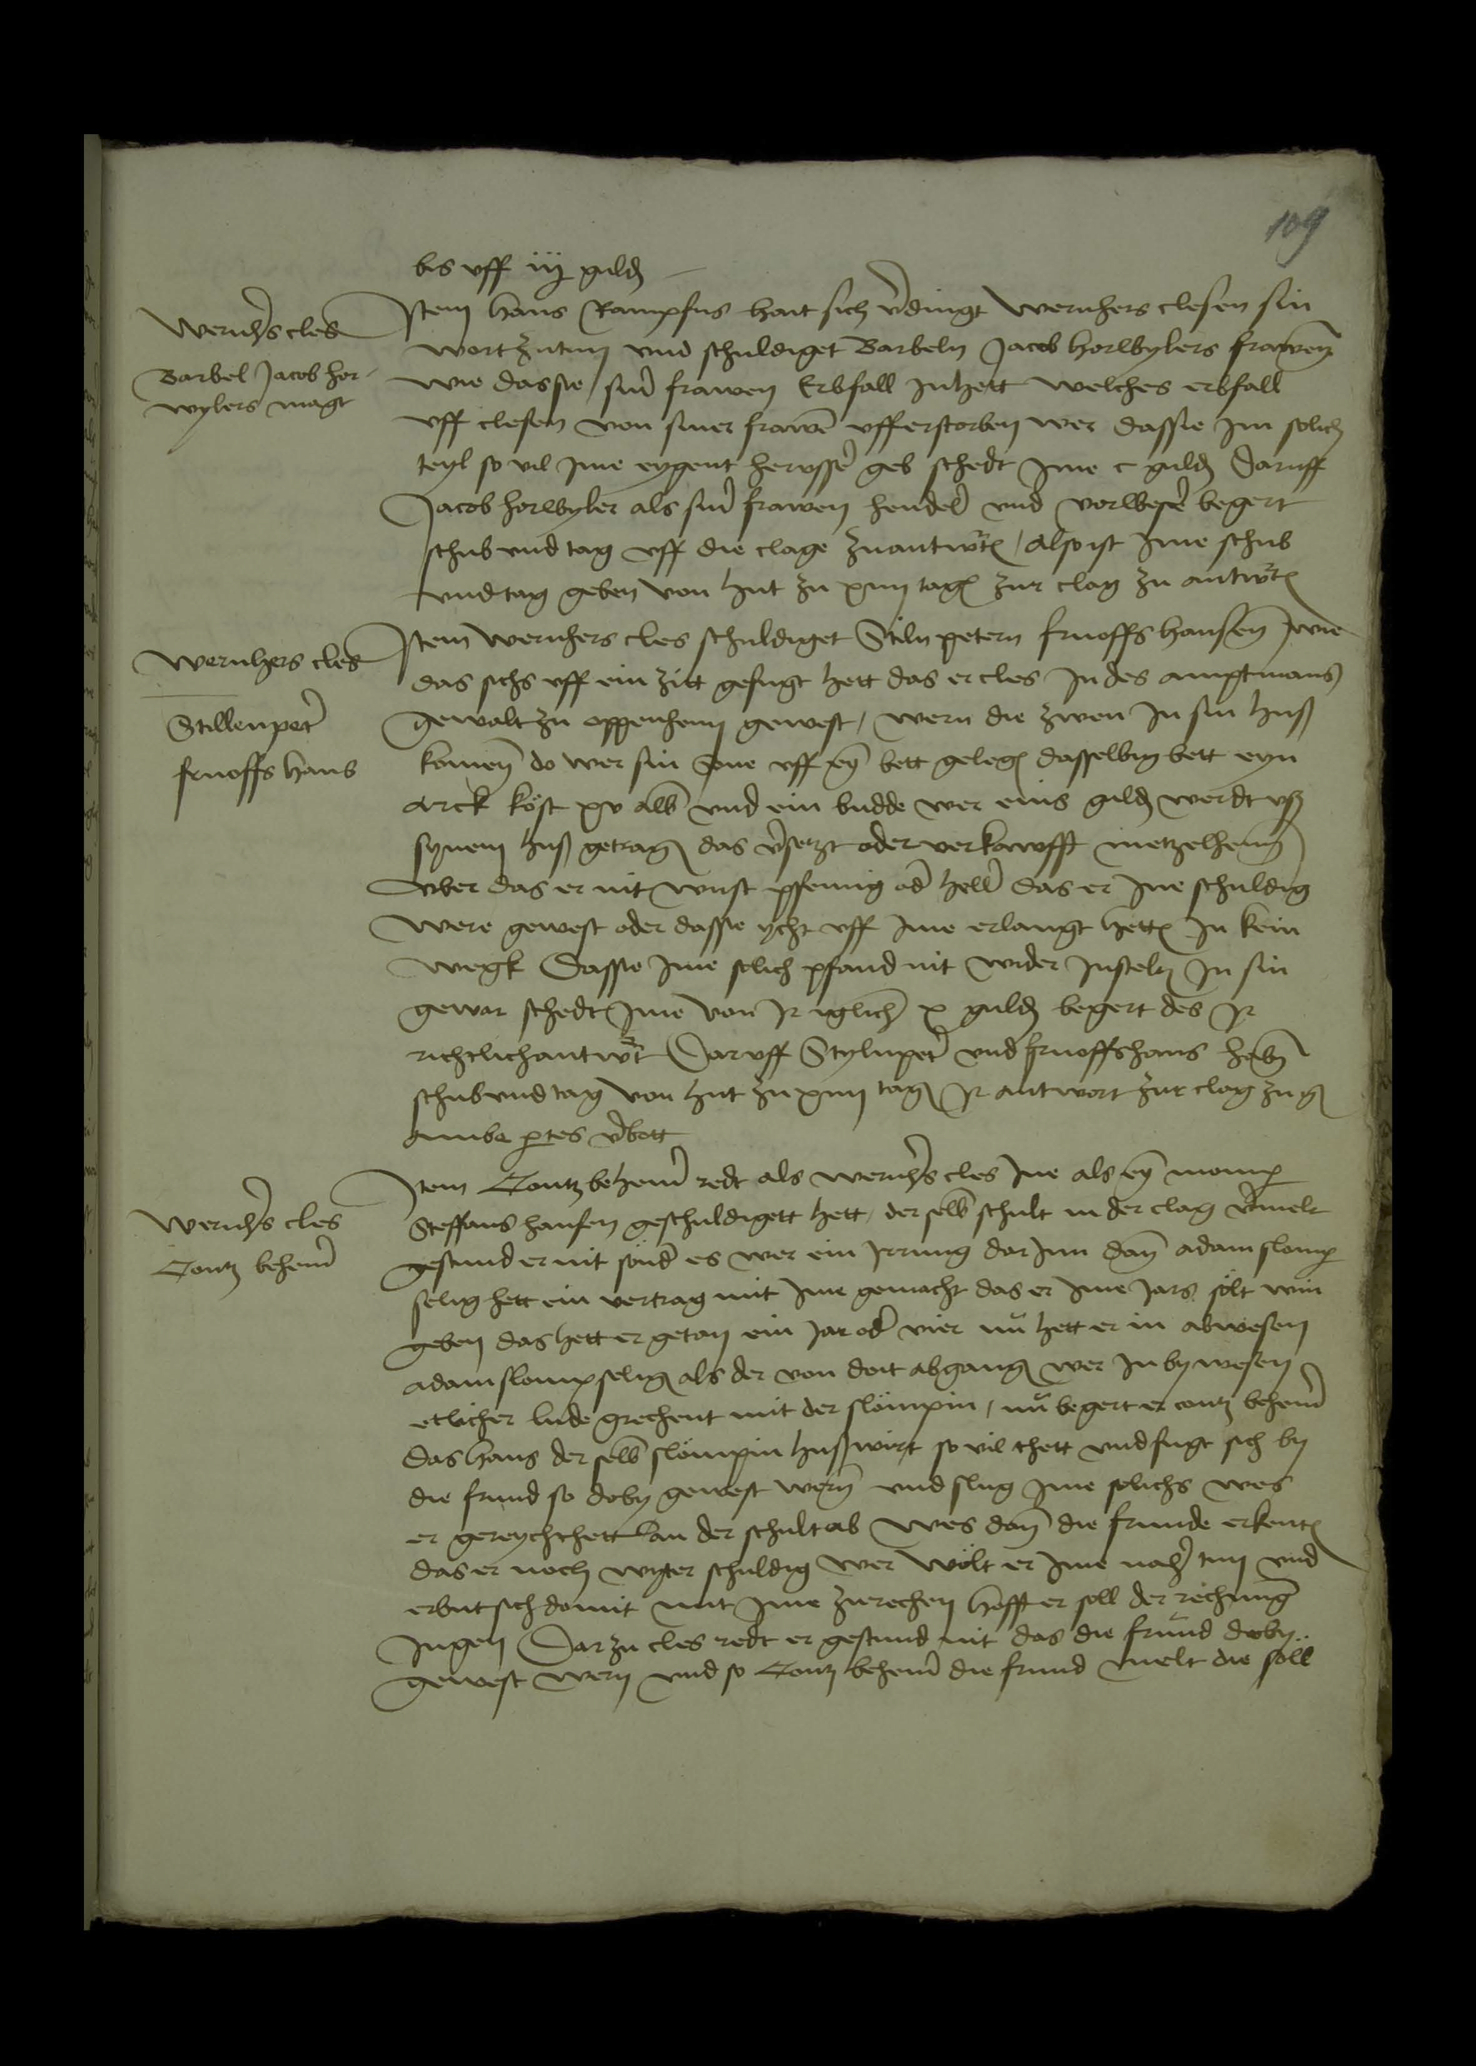 109
bis uff iij guldẽ
Wernh's cles
Barbel Jacob hor-
wylers magt
Item Hans Rampfus hait sich v'dingt Wernhers clesen sin
wort zutun und schuldiget Barbeln Jacob Horwylers frawen
wie dassie sin' frawen Erbfall Inhett welches erbfall
uff clesen von siner frawẽ ufferstorben wer dassie im solich
teyl so vil ime eygent herusser geb schedt ime c guldẽ Daruff
Jacob horwyler als sin' frawen hendel' und vorweser begert
schub und tag uff die clage zuantwtẽ / Also ist ime schub
und tag geben von hut zu xiiij tagẽ zur clag zu antwtẽ
Wernhers cles
Stillenpet'
fruoffs Hans
Item Wernhers cles schuldiget Stiln petern fruoffs hansen wie
das sichs uff ein zitt gefugt hett das er cles in des amptmans
gewalt zu oppenheim gewest / wern die zwen in sin huß
komen do wer sin Sone uff eyn bett gelegẽ dasselbig bett eyn
arck köst xv alb und ein budde wer eins guldẽ werdt uß
synem huß getragẽ das v'setzt oder verkawfft
Uber das er nit wust pfennig od' hell' das er ine schuldig
were gewest oder dassie ycht uff ime erlangt hettẽ in kein
wegk Dassie ime solich pfand nit wider insteln in sin
gewar schedt ime von ir iglich' x guldẽ begert des ir
richtlich antwt Daruff Stylnpet' und fruoffshans habẽ
schub und tag von hut zu xiiij tagẽ ir antwort zur clag zu gẽ
ambe ptes v'bott
Wernh's cles
Contz behem'
Item Contz behem' redt als wernh's cles ine als eyn momp
Steffans hansen geschuldigett hett / der selbẽ schult in der clag v'melt
gestund er nit sönd' es wer ein Irrung dar Inn dan adam slomp
selig hett ein vertrag mit ime gemacht das er ime Jars sölt win
geben das hett er getan ein jar od' vier nü hett er in abwesen
adam slomp seligẽ als der von doit abgangẽ wer in bywesen
etlicher lude grechent mit der slömpin / nü begert er contz behem'
das Hans der selbẽ slömpin hußwirt so vil thett und fugt sich by
die frund so doby gewest wern und slug ime solichs wes
er gereycht hett an der schult ab wes dan die frunde erkentẽ
das er noch wyter schuldig wer wölt er ime nach' tun und
erbut sich domit mit ime zurechen hofft er soll der rechnung
ingen Dar zu cles redt er gestund nit das die frund doby
gewest wern und so Contz behem' die frund melt die söll